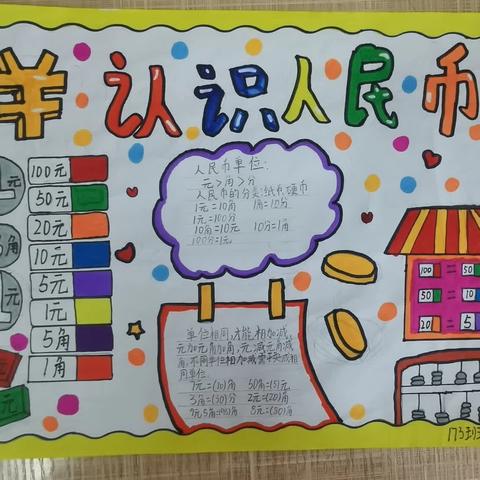 羊 认识人民币
元
100元
50元
20元
10元
5元
1元
5角
1角
角
元
元
人民币单位:
元>角>分
人民币的分类:纸币硬币
1元=10角 1角=10分
1元=100分
10角=10元 10分=1角
100分=1元
单位相同,才能相加减。
元加元,角加角,元减元,角减
角,不同单位相加减需要变成相
同单位.
1元=(10)角 50角=(5)元
3角=(30)分 2元=(20)角
8元=(80)角
100 = 50
50 = 10
20 = 5